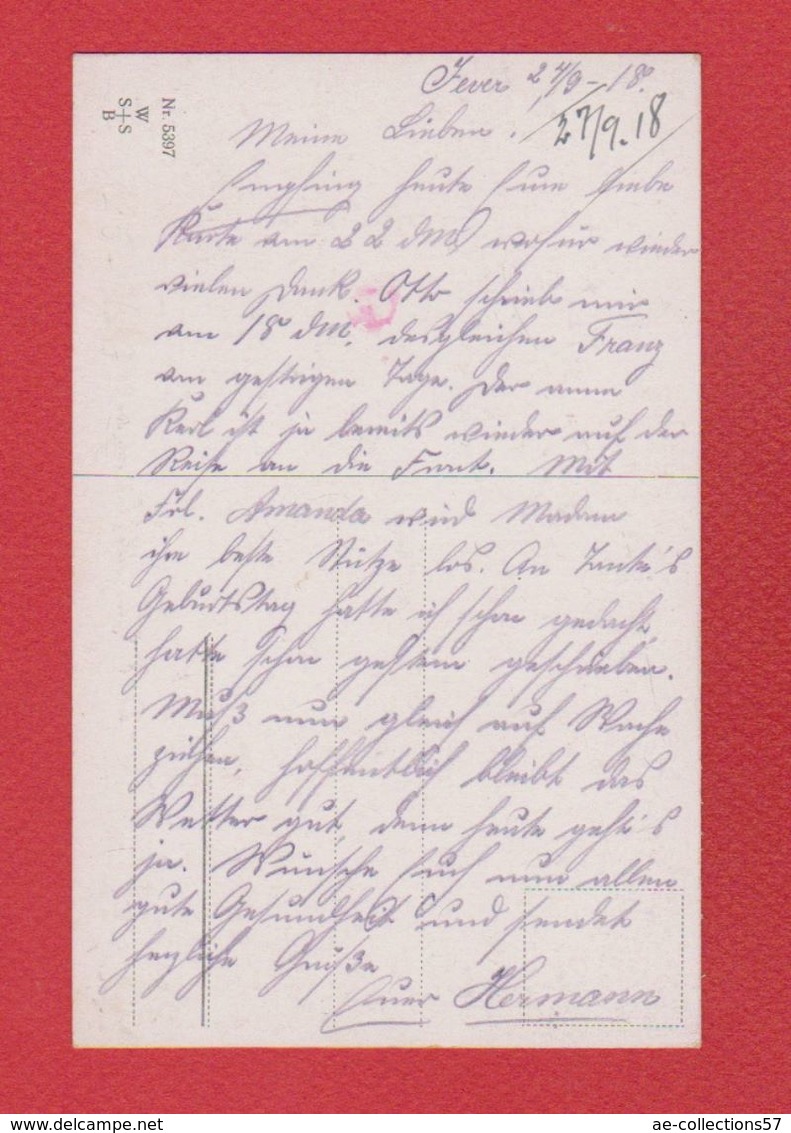 Nr. 5397
W
S+S
B
Jever 27/9-18.
27/9.18
Meine Lieben.
Empfing heute Eure liebe
Karte vom 22 dM, wofür wieder
vielen Dank. Otto schrieb mir
am 18 dM. desgleichen Franz
am gestrigen Tage. Der arme
Kerl ist ja bereits wieder auf der
Reise an die Front. Mit
Frl. Amanda wird Madam
ihre beste Stütze los. An Tante's
Geburtstag hatte ich schon gedacht,
hatte schon gestern geschrieben.
Muß nun gleich auf Wache
ziehen, hoffentlich bleibt das
Wetter gut, denn heute geht's
ja. Wünsche Euch nun allen
gute Gesundheit und sendet
herzliche Grüße
Euer Hermann
delcampe.net
ae-collections57